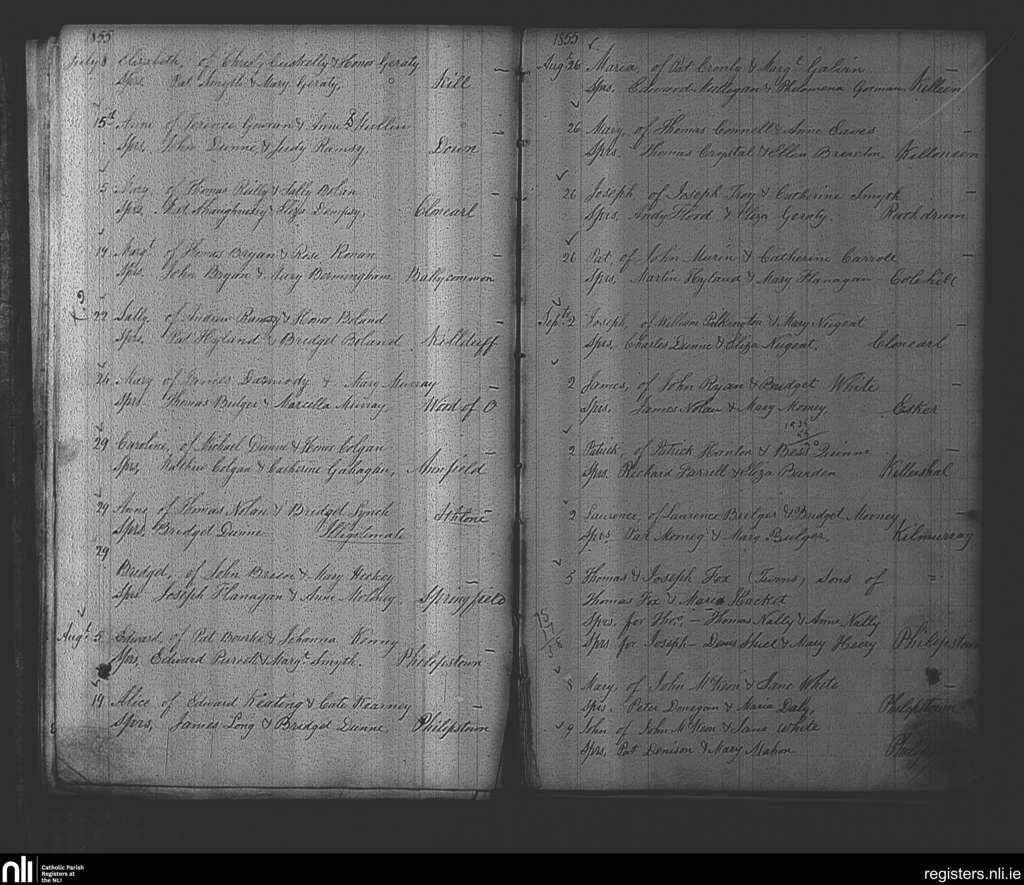 1855
July 8 Elizabeth, of Christ. Cuskelly & Honor Geraty
Sprs. Pat Smyth & Mary Geraty, Kill
15th Anne of Terence Gowran & Anne Mullin
Sprs. John Dunne & Judy Ramsy Down
15 Mary, of Thomas Reilly & Sally Bolan
Sprs. Pat Shaughnessy & Eliza Dempsy, Clonearl
14 Margt. of Thomas Bryan & Rose Ronan
Sprs. John Bryan & Mary Bermingham Ballycommon
22 Sally, of Andrew Ramsy & Honor Boland
Sprs. Pat Hyland & Bridget Boland Killduff
24 Mary of James Darmody & Mary Murray
Sprs. Thomas Bulger & Marcella Murray, Wood of O
29 Caroline, of Michael Dunne & Honor Colgan
Sprs, Matthew Colgan & Catherine Gahagan, Annfield
29 Anne of Thomas Nolan & Bridget Lynch
Sprs, Bridget Dunne Illigetimate
29
Bridget, of John Bracn & Mary Hickey
Sprs Joseph Flanagan & Anne Moloney. Springfield
Augt. 5 Edward of Pat Bourke & Johanna Kenny
Sprs, Edward Purcell & Margt. Smyth. Philipstown
19 Alice of Edward Keating & Cate Kearney
Sprs, James Long & Bridget Dunne, Philipstown
1855
Augt 26 Maria, of Pat Cronly & Margt. Galvin
Sprs, Edward Mulligan & Philomena Gorman, Killeen
26 Mary, of Thomas Connell & Anne Eaves
Sprs. Thomas Crystal & Ellen Brereton, Killoneen
26 Joseph, of Joseph Troy & Catherine Smyth
Sprs, Andy Flood & Eliza Geraty. Rathdrum
26 Pat, of John Murin & Catherine Carroll
Sprs, Martin Hyland & Mary Flanagan Colehill
Septr. 2 Joseph, of William Pilkington & Mary Nugent
Sprs, Charles Dunne & Eliza Nugent, Clonearl
2 James, of John Ryan & Bridget White
Sprs. James Nolan & Mary Momey, Esker
2 Patrick, of Patrick Hanlon & Bess Quinn
Sprs. Richard Farrell & Eliza Barden Killenshal
2 Laurence, of Laurence Bulger & Bridget Mooney
Sprs. Pat Momey & Mary Bulger, Kilmurray
5 Thomas & Joseph Fox (Twins) sons of
Thomas Fox & Maria Hacket
Sprs. for Thos. - Thomas Nally & Anne Nally
Sprs for Joseph - Denis Shiel & Mary Heavy Philipstown
8 Mary, of John McKeon & Jane White
Sprs. Peter Donegan & Maria Daly, Philipstown
9 John of John McKeon & Jane White
Sprs, Pat Denison & Mary Mahon
nli
Catholic Parish
Registers at
the NLI
registers.nli.ie